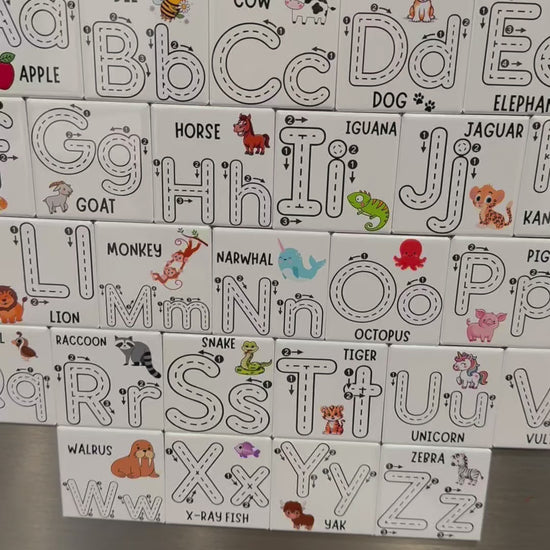 Aa
APPLE
Bb
COW
Cc
Dd
DOG
Ee
Gg
GOAT
HORSE
Hh
IGUANA
Ii
JAGUAR
Jj
Ll
LION
MONKEY
Mm
NARWHAL
Nn
Oo
OCTOPUS
Pp
RACCOON
Rr
SNAKE
Ss
TIGER
Tt
Uu
UNICORN
WALRUS
Ww
Xx
X-RAY FISH
Yy
YAK
ZEBRA
Zz